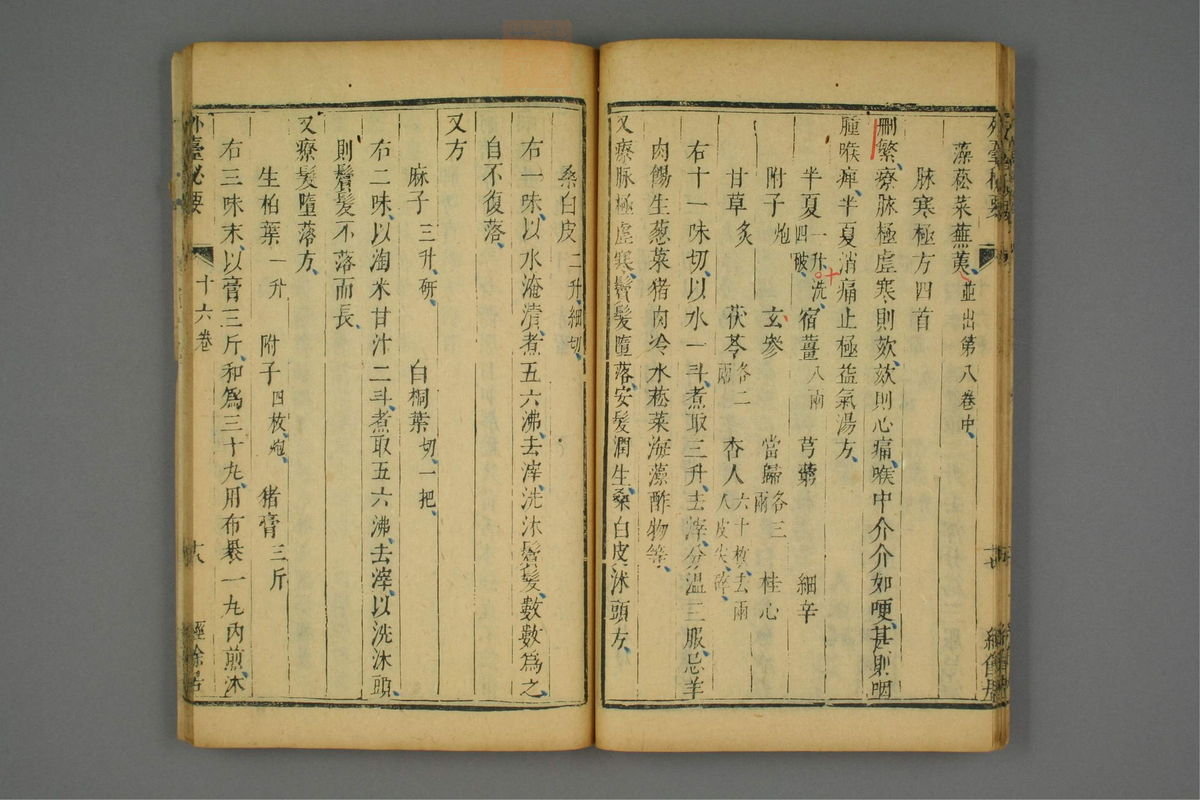 藻菘菜蕪荑並出第八卷中
脉寒極方四首
刪繁療脉極虛寒則欬欬則心痛喉中介介如哽甚則咽
腫喉痺半夏消痛止極益氣湯方
半夏一升洗四破 宿薑八兩 芎藭 細辛
附子炮 玄參 當歸各三兩 桂心
甘草炙 茯苓各二兩 杏人六十枚去兩人皮尖碎
右十一味切以水一斗煮取三升去滓分溫三服忌羊
肉餳生蔥菜猪肉冷水菘菜海藻酢物等
又療脉極虛寒鬢髮墮落安髮潤生桑白皮沐頭方
桑白皮二升細切
右一味以水淹漬煮五六沸去滓洗沐鬢髮數數爲之
自不復落
又方
麻子三升研 白桐葉切一把
右二味以淘米甘汁二斗煮取五六沸去滓以洗沐頭
則鬢髮不落而長
又療髮墮落方
生柏葉一升 附子四枚炮 猪膏三斤
右三味末以膏三斤和爲三十丸用布裹一丸內煎沐
外臺秘要 十六卷 十八 經餘居